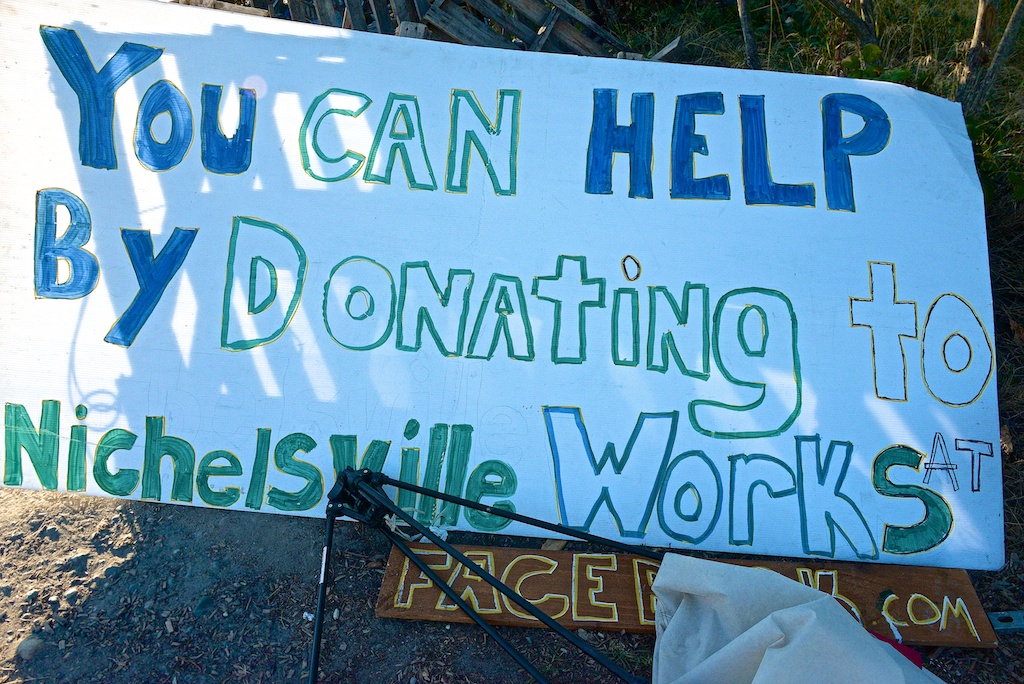 You CAN HELP
By DONAtiNg to
Nichelsville Works AT
FACEB k.COM